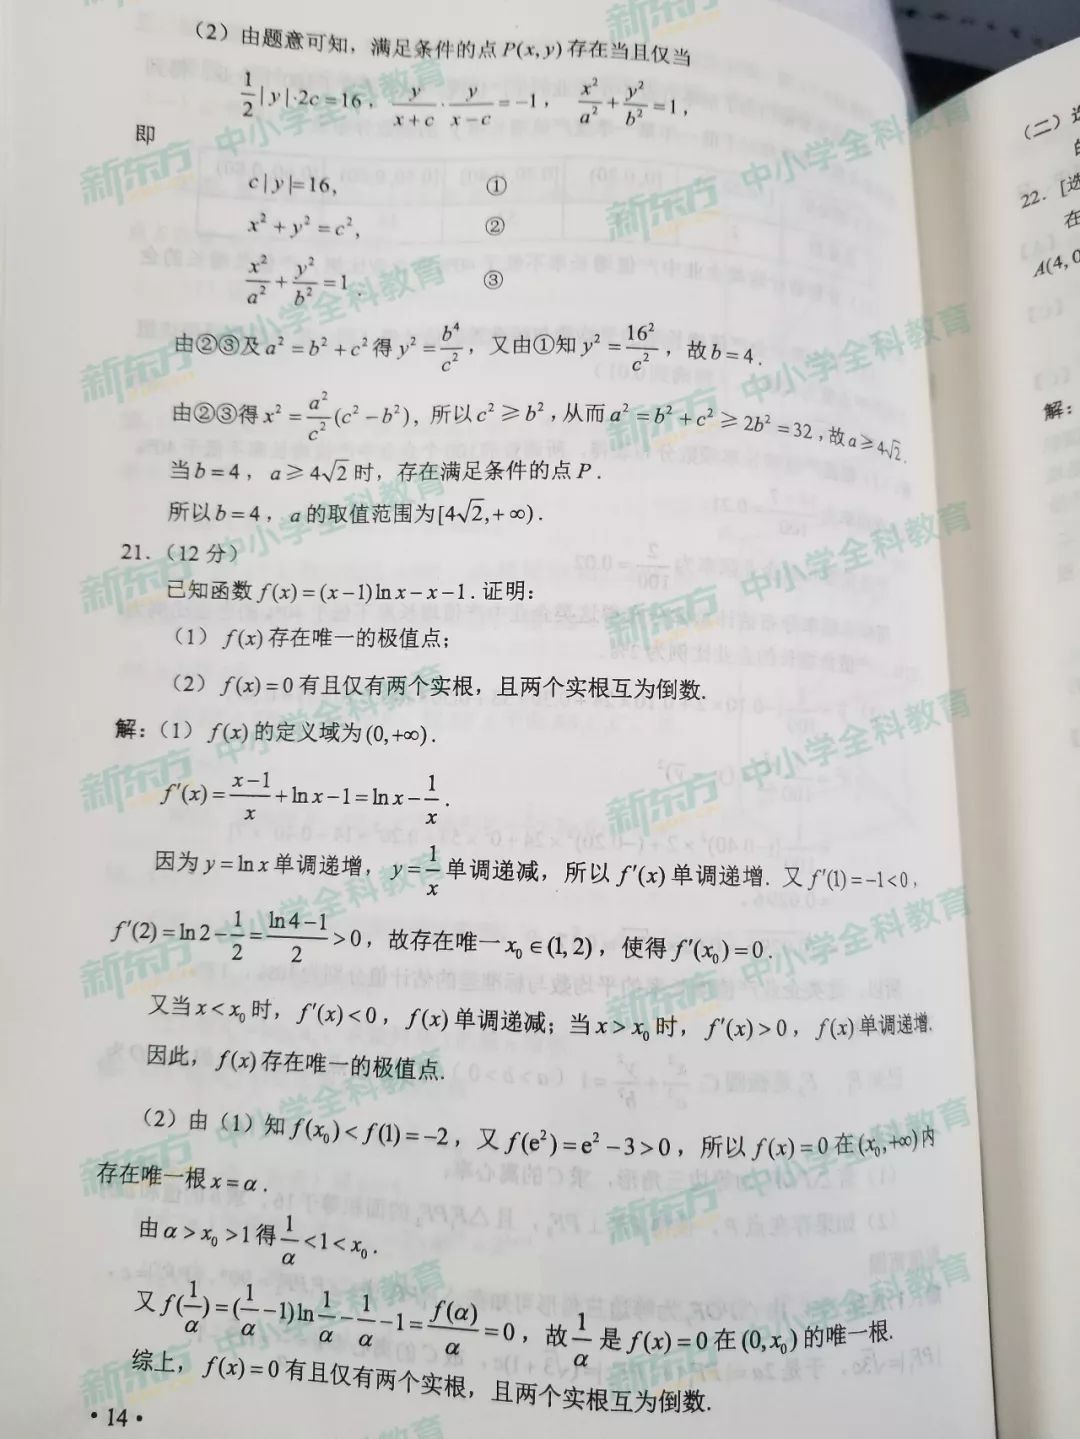 (2) 由题意可知，满足条件的点 P(x, y) 存在当且仅当
1/2|y|·2c=16，y/(x+c)·y/(x−c)=−1，x²/a²+y²/b²=1，
即
c|y|=16, ①
x²+y²=c², ②
x²/a²+y²/b²=1. ③
由②③及a²=b²+c²得y²=b⁴/c²，又由①知y²=16²/c²，故b=4.
由②③得x²=a²/c²(c²−b²)，所以c²≥b²，从而a²=b²+c²≥2b²=32，故a≥4√2.
当b=4，a≥4√2时，存在满足条件的点P.
所以b=4，a的取值范围为[4√2,+∞).
21.（12分）
已知函数 f(x)=(x−1)ln x−x−1. 证明:
(1) f(x)存在唯一的极值点;
(2) f(x)=0有且仅有两个实根，且两个实根互为倒数.
解: (1) f(x)的定义域为(0,+∞).
f′(x)=(x−1)/x+ln x−1=ln x−1/x.
因为y=ln x单调递增，y=1/x单调递减，所以f′(x)单调递增. 又f′(1)=−1<0，
f′(2)=ln 2−1/2=(ln 4−1)/2>0，故存在唯一x₀∈(1,2)，使得f′(x₀)=0.
又当x<x₀时，f′(x)<0，f(x)单调递减；当x>x₀时，f′(x)>0，f(x)单调递增.
因此，f(x)存在唯一的极值点.
(2) 由（1）知f(x₀)<f(1)=−2，又f(e²)=e²−3>0，所以f(x)=0在(x₀,+∞)内
存在唯一根x=α.
由α>x₀>1得1/α<1<x₀.
又f(1/α)=(1/α−1)ln 1/α−1/α−1=f(α)/α=0，故1/α是f(x)=0在(0,x₀)的唯一根.
综上，f(x)=0有且仅有两个实根，且两个实根互为倒数.
·14·
(二) 选
22. [选
在
A(4,0
解:
新东方 中小学全科教育